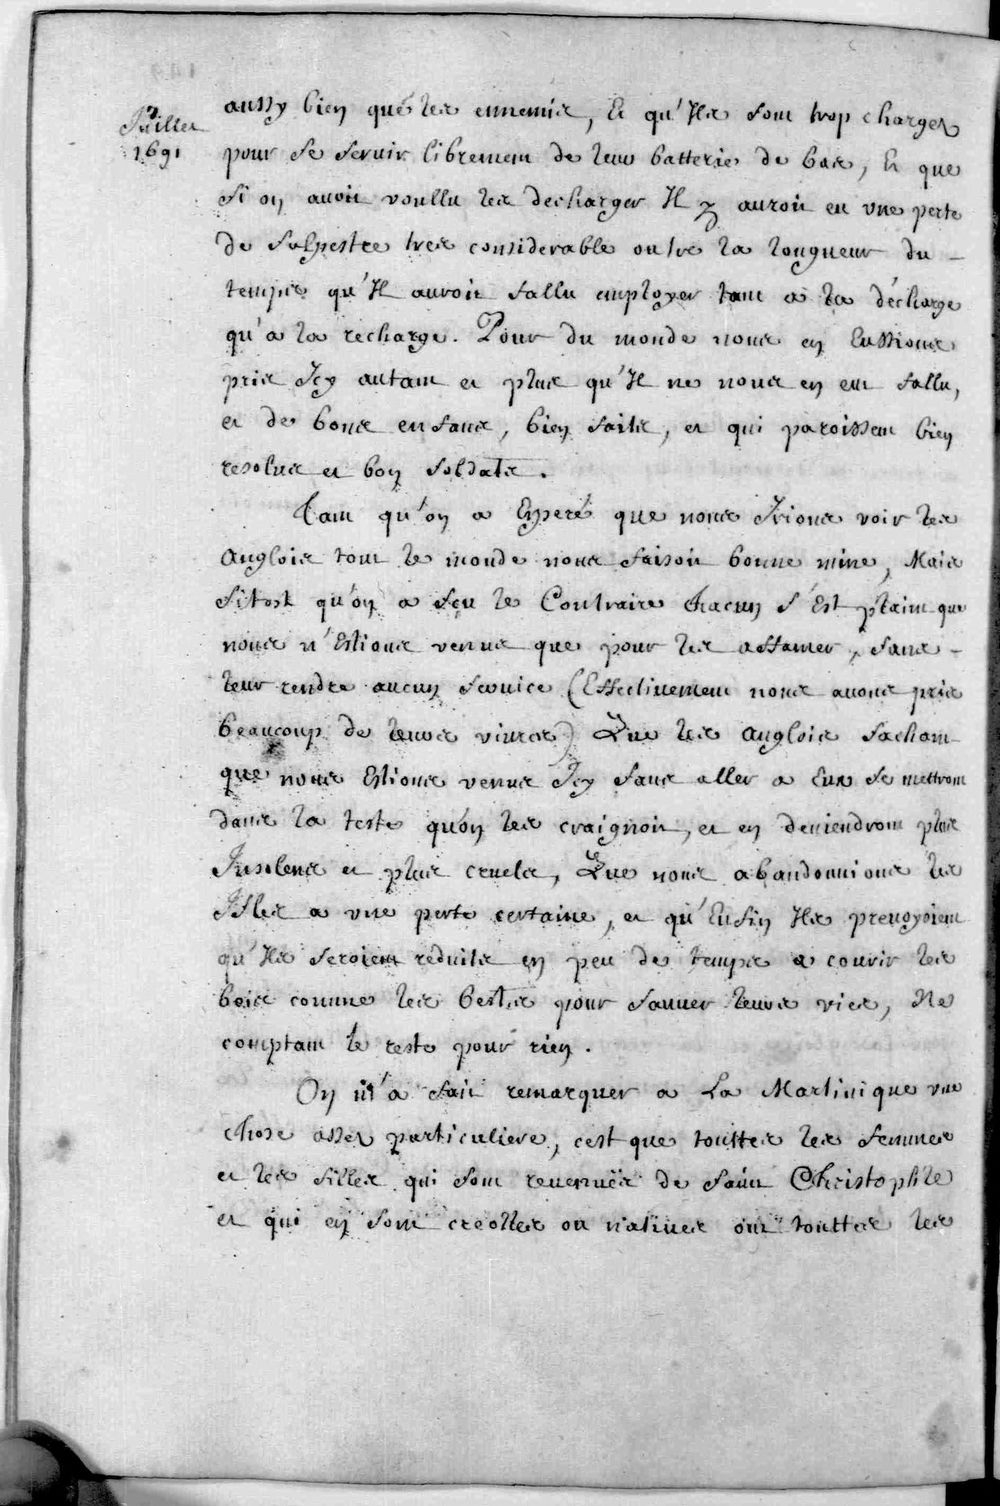 Juillet
1691
aussy bien que les ennemis, Et qu'Ils sont trop chargez
pour se seruir librement de leur batterie de bas, Et que
si on auoit voullu les decharger Il y auroit eu vne perte
de salpestre tres considerable outre la longueur du
temps qu'Il auroit fallu employer tant a la décharge
qu'a la recharge. Pour du monde nous en Eussions
pris Icy autant et plus qu'Il ne nous en eut fallu,
et de bons enfans, bien faits, et qui paroissent bien
resolus et bon soldats.
Tant qu'on a Esperé que nous Irions voir les
anglois tout le monde nous faisoit bonne mine, Mais
sitost qu'on a sçu le Contraire chacun s'Est plaint que
nous n'Estions venus que pour les affamer, sans
leur rendre aucun seruice (Effectiuement nous auons pris
beaucoup de leurs viures) Que les anglois sachant
que nous Estions venus Icy sans aller a Eux se mettront
dans la teste qu'on les craignoit, et en deuiendront plus
Insolens et plus cruels, Que nous abandonnions les
Isles a vne perte certaine, et qu'Enfin Ils preuoyoient
qu'Ils seroient reduits en peu de temps a courir les
bois comme les bestes pour sauuer leurs vies, Ne
comptant le reste pour rien.
On m'a fait remarquer a La Martinique vne
chose assez particuliere, c'est que touttes les femmes
et les filles qui sont reuenuës de saint Christophle
et qui en sont creolles ou natiues ont touttes les